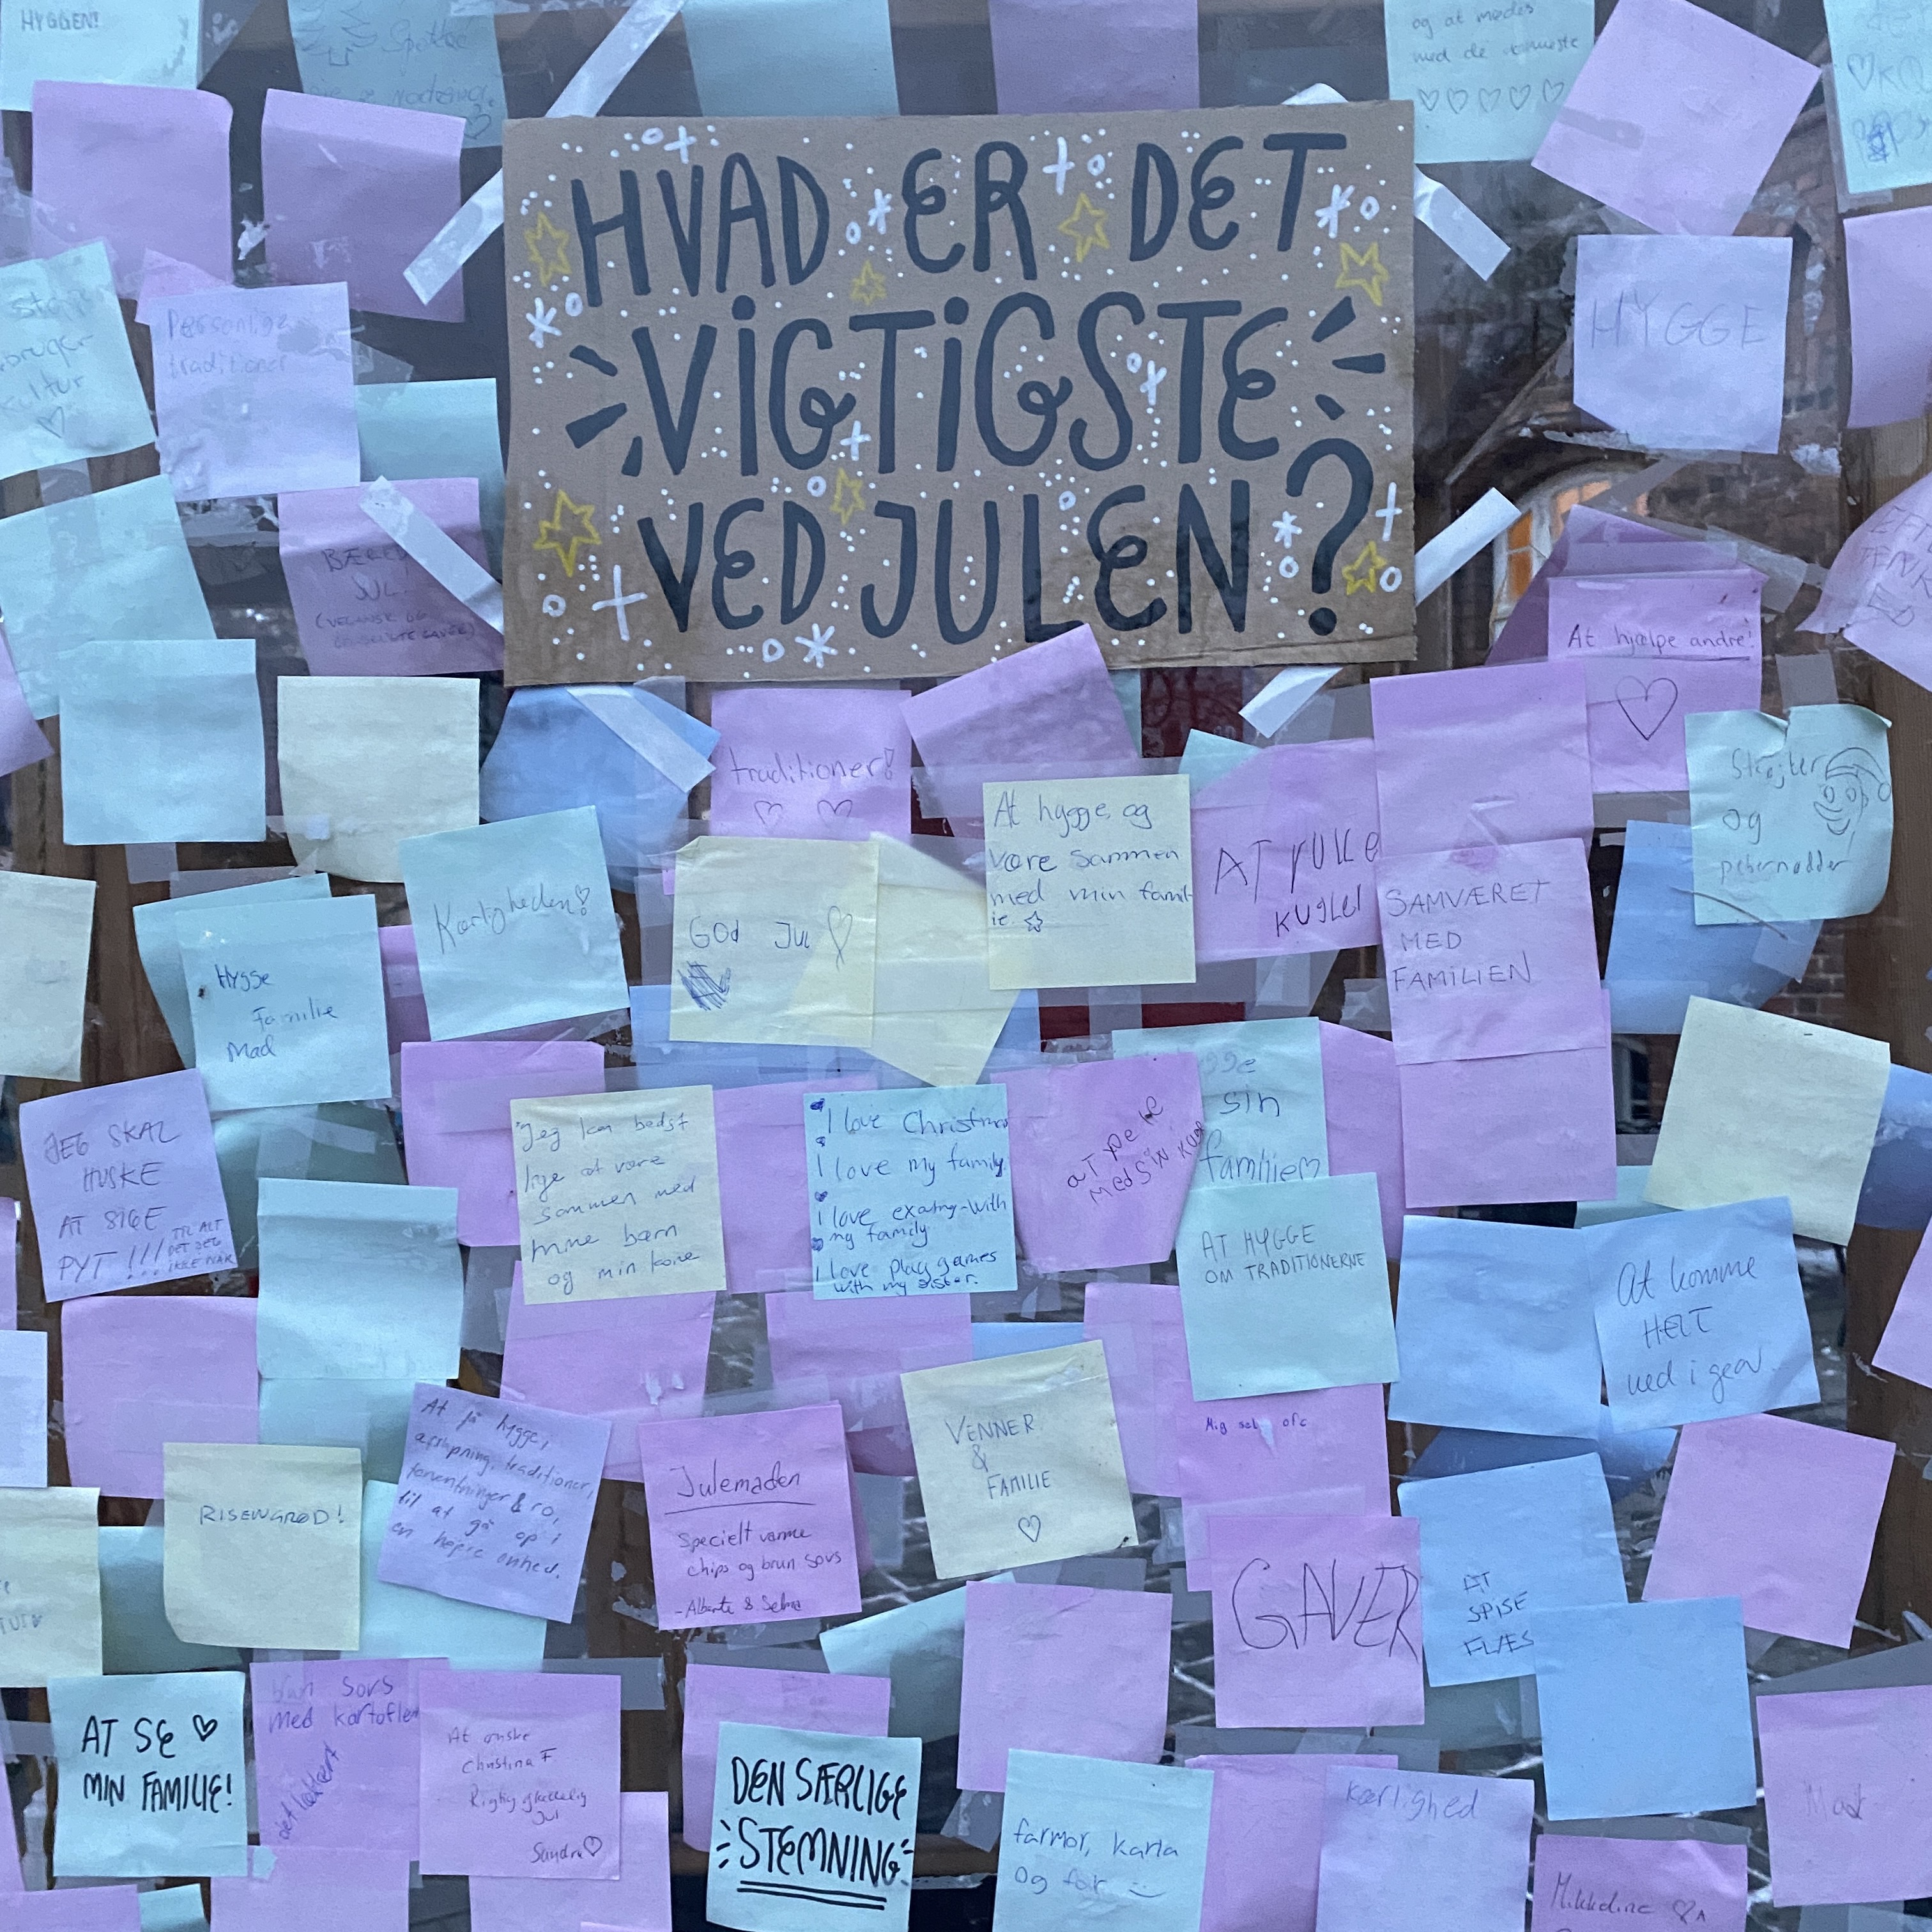 HYGGEN!
og at mødes
med de
HVAD ER DET
VIGTIGSTE
VED JULEN?
HYGGE
Personlige
traditioner
JUL!
At hjælpe andre!
traditioner!
Og
At hygge og
være sammen
med min famil-
ie.
AT
SAMVÆRET
MED
FAMILIEN
Kærligheden!
GOD JUL
Hygge
Familie
Mad
JEG SKAL
HUSKE
AT SIGE
PYT !!!
TIL ALT
DET JEG
IKKE NÅR
Jeg kan bedst
lige at være
sammen med
mine børn
og min kone
I love Christmas
I love my family
I love
my family
I love play games
with my sister.
MED SIN
sin
familien
AT HYGGE
OM TRADITIONERNE
At komme
HELT
ned i gear.
RISENGRØD!
At få hygge,
traditioner,
forventninger & ro,
til at gå op i
en højere enhed.
Julemaden
Specielt varme
chips og brun sovs
- Alberte & Selma
VENNER
&
FAMILIE
Mig selv ofc
GAVER
AT
SPISE
AT SE
MIN FAMILIE!
brun sovs
med kartofler
At ønske
Christina F
Rigtig glædelig
Jul
Sandra
DEN SÆRLIGE
STEMNING
farmor, karla
og far
kærlighed
Mad